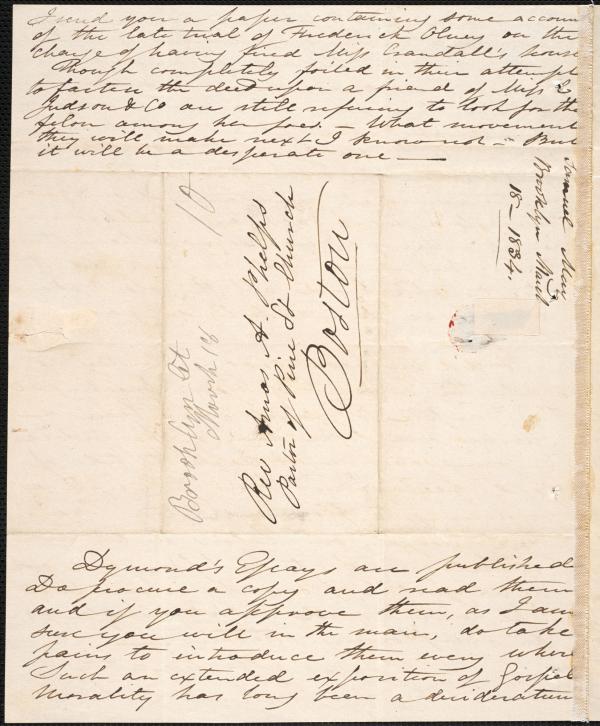 I send you a paper containing some account
of the late trial of Frederick Olney on the
charge of having fired Miss Crandall's house
Though completely foiled in their attempt
to fasten the deed upon a friend of Miss C
Judson & Co are still refusing to look for the
felon among her foes. – What movement
they will make next I know not – But
it will be a desperate one –
Samuel May
Brooklyn March
18 – 1834.
10
Brooklyn Ct
March 18
Rev Amos A. Phelps
Pastor of Pine St Church
Boston
Dymond's Essays are published
Do procure a copy and read them
and if you approve them, as I am
sure you will in the main, do take
pains to introduce them every where
Such an extended exposition of Gospel
Morality has long been a desideratum